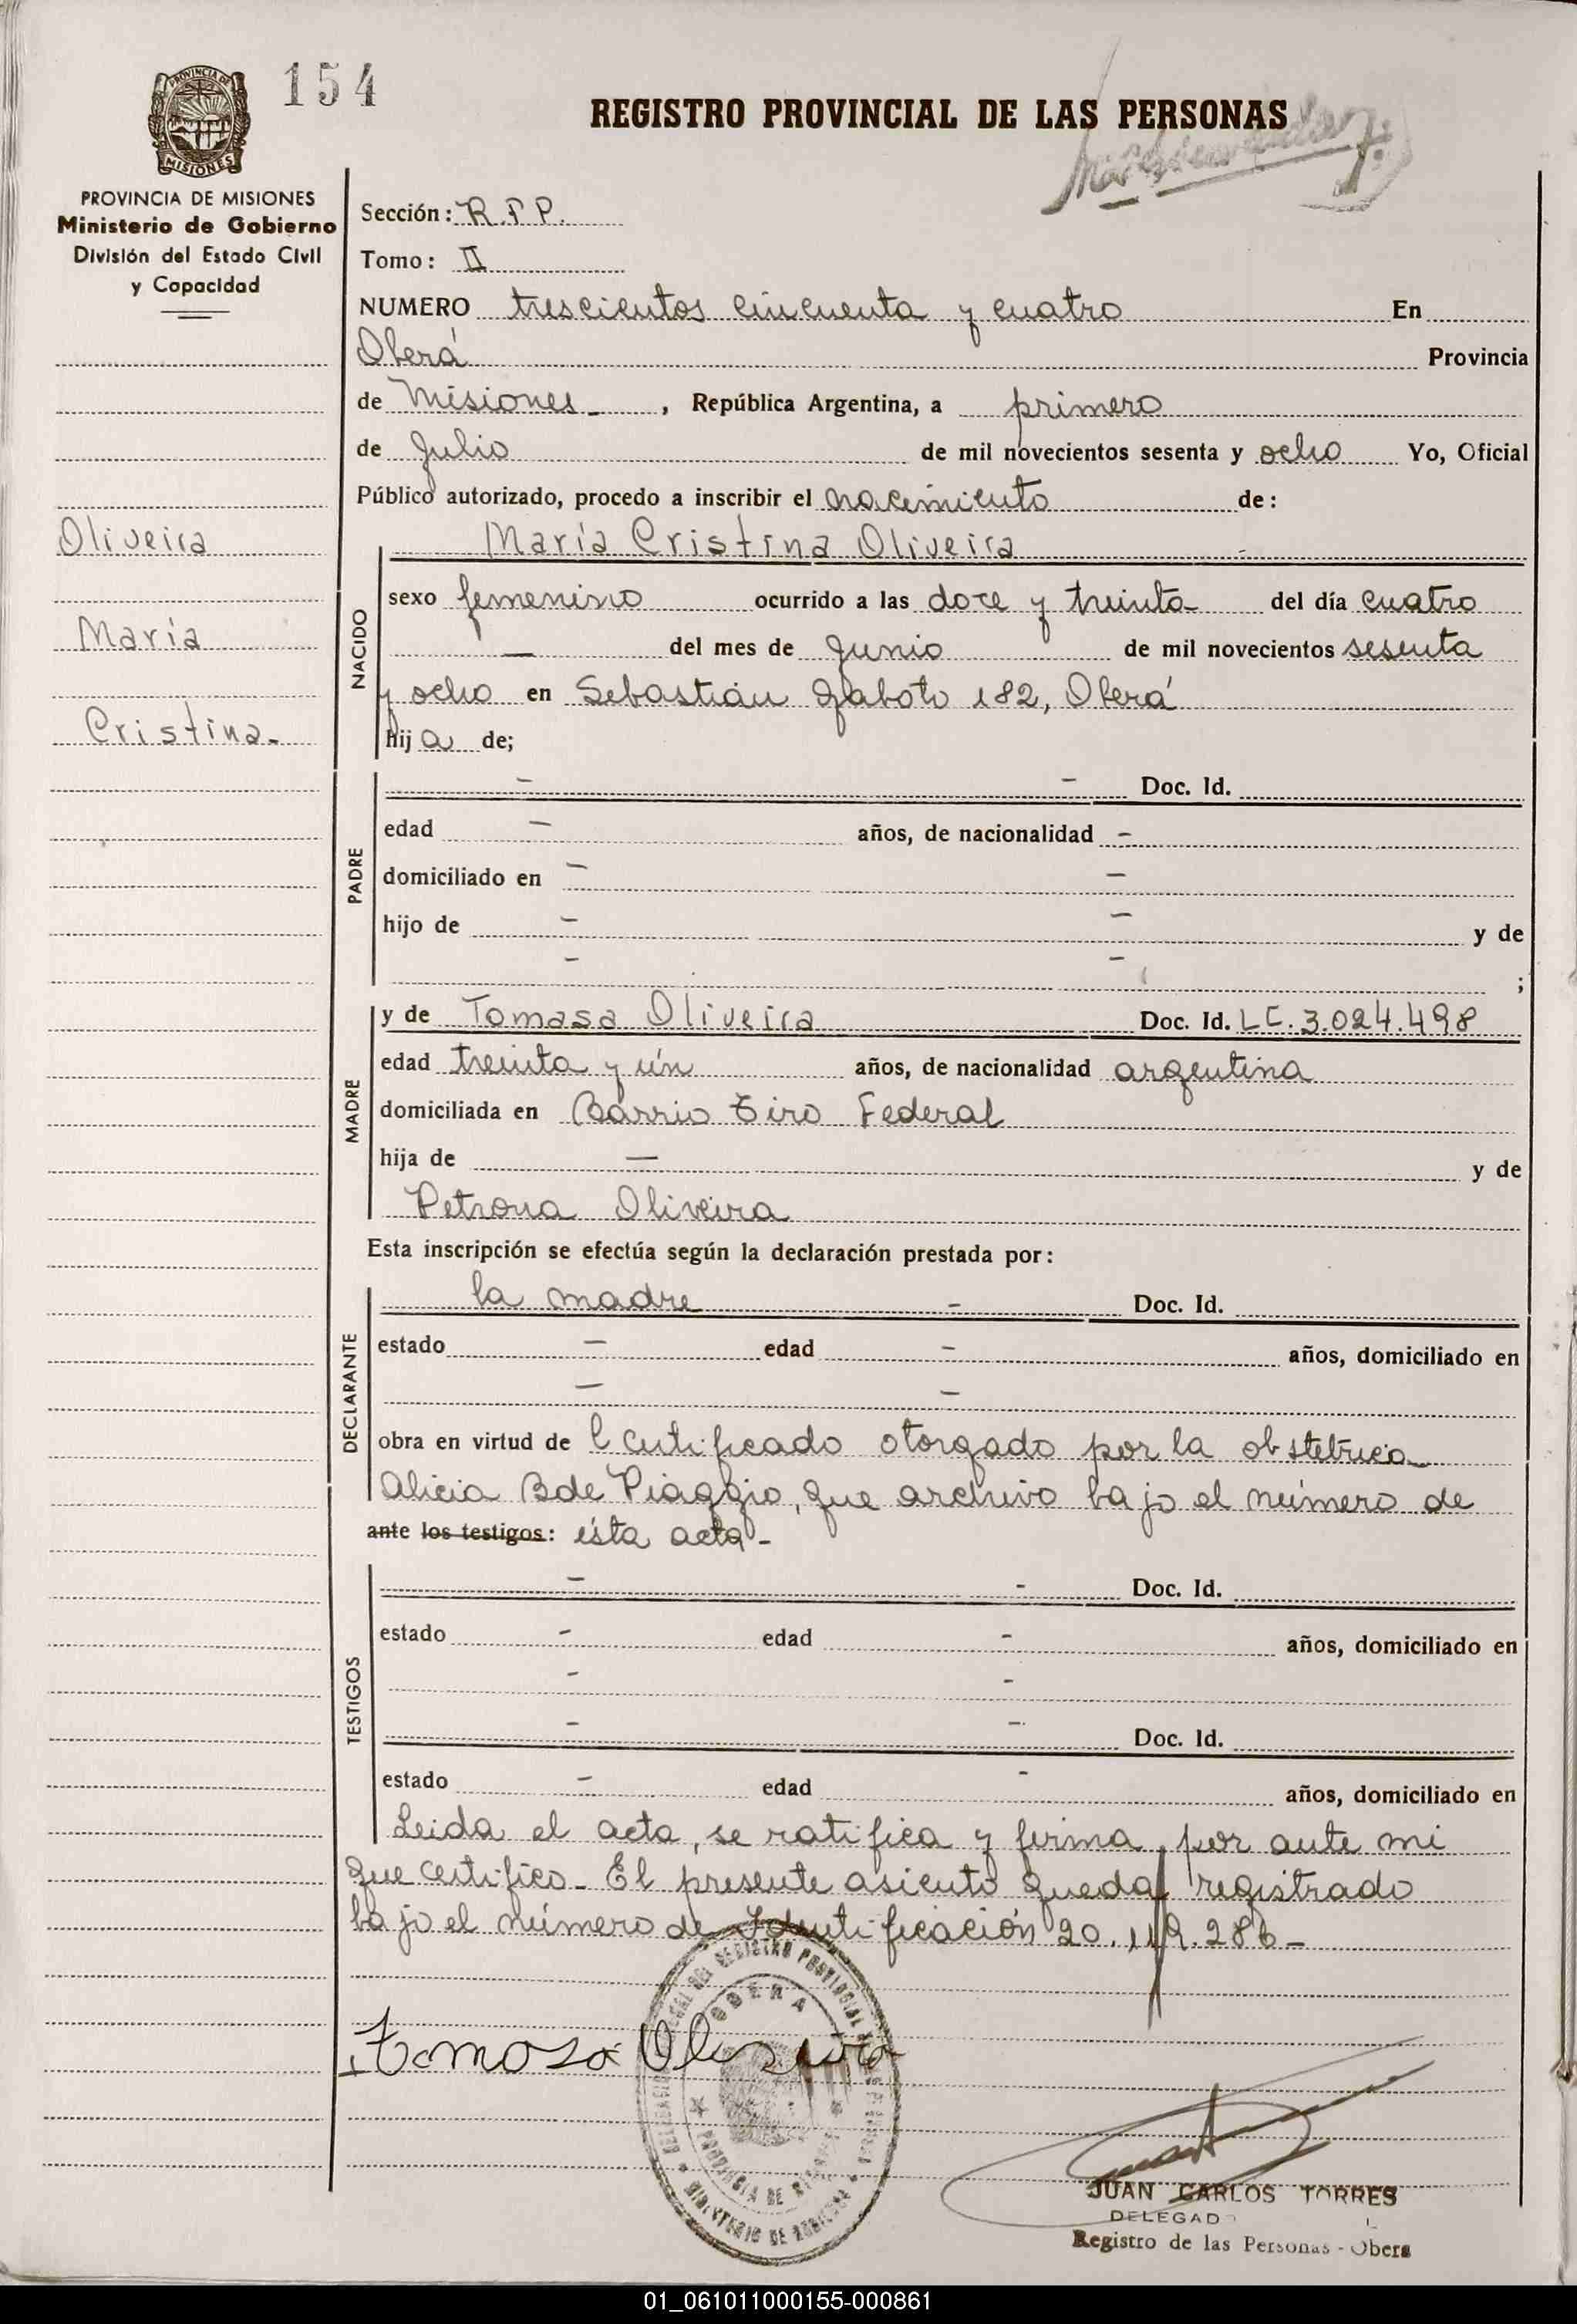 154
REGISTRO PROVINCIAL DE LAS PERSONAS
PROVINCIA DE
MISIONES
PROVINCIA DE MISIONES
Ministerio de Gobierno
División del Estado Civil
y Capacidad
Oliveira
María
Cristina.-
Sección: R.P.P.
Tomo: II
NUMERO trescientos cincuenta y cuatro En
Oberá Provincia
de Misiones - , República Argentina, a primero
de Julio de mil novecientos sesenta y ocho Yo, Oficial
Público autorizado, procedo a inscribir el nacimiento de:
María Cristina Oliveira -
NACIDO
sexo femenino ocurrido a las doce y treinta del día cuatro
— del mes de Junio de mil novecientos sesenta
y ocho en Sebastián Gaboto 182, Oberá
hija de;
PADRE
- - Doc. Id.
edad - años, de nacionalidad -
domiciliado en - -
hijo de - - y de
- - ;
MADRE
y de Tomasa Oliveira Doc. Id. LC. 3.024.498
edad treinta y un años, de nacionalidad argentina
domiciliada en Barrio Tiro Federal
hija de — y de
Petrona Oliveira
Esta inscripción se efectúa según la declaración prestada por:
DECLARANTE
la madre - Doc. Id.
estado - edad - años, domiciliado en
- -
obra en virtud del certificado otorgado por la obstetrica
Alicia B de Piaggio, que archivo bajo el número de
ante los testigos: ésta acta -
TESTIGOS
- - Doc. Id.
estado - edad - años, domiciliado en
- -
- - Doc. Id.
estado - edad - años, domiciliado en
Leida el acta, se ratifica y firma, por ante mi
que certifico - El presente asiento queda registrado
bajo el número de Identificación 20.119.286 -
Tomasa Oliveira
OBERA
PROVINCIA DE MISIONES
MINISTERIO DE GOBIERNO
JUAN CARLOS TORRES
DELEGADO
Registro de las Personas - Obera
01_061011000155-000861